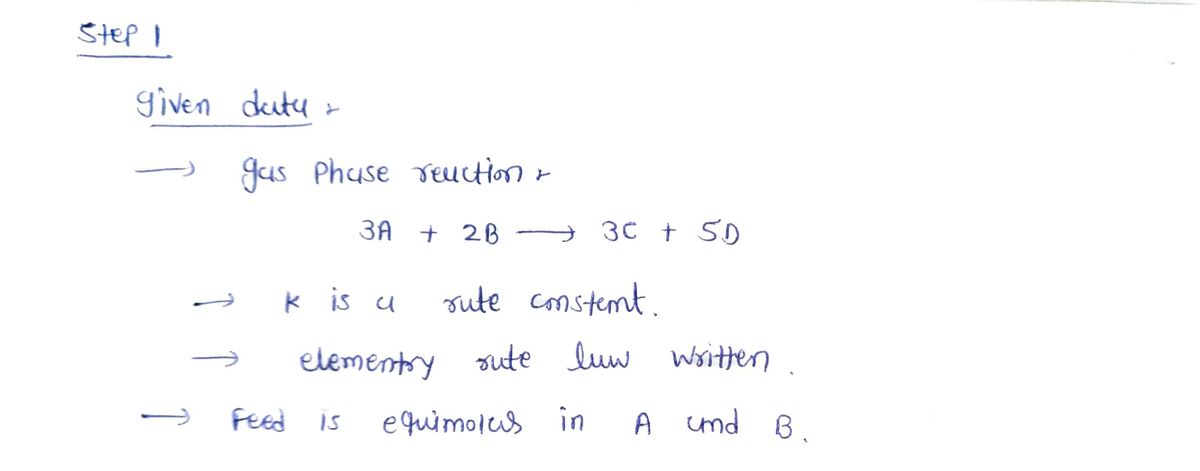 Step 1
given data :-
→ gas phase reaction :-
3A + 2B → 3C + 5D
→ k is a rate constant.
→ elementry rate law written.
→ Feed is equimolar in A and B.